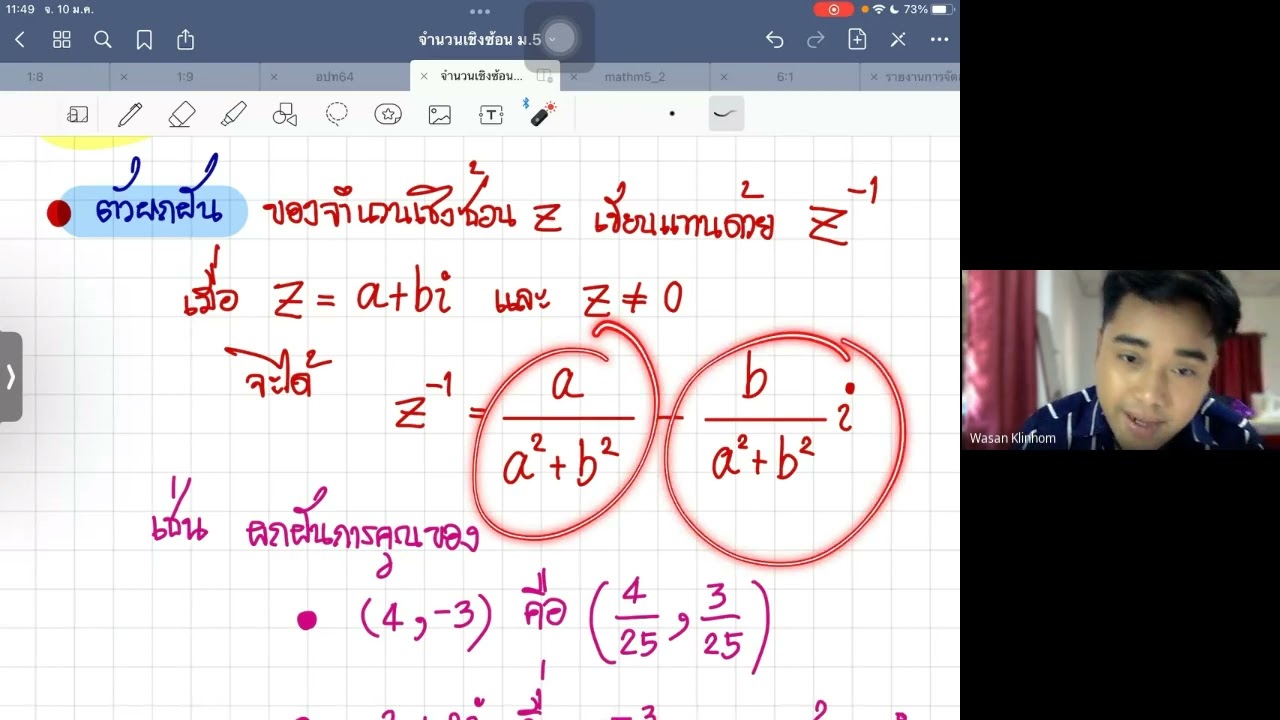 11:49 จ. 10 ม.ค.
73%
จำนวนเชิงซ้อน ม.5
1:8
1:9
อปท64
จำนวนเชิงซ้อน...
mathm5_2
6:1
ตัวผกผัน ของจำนวนเชิงซ้อน z เขียนแทนด้วย z⁻¹
เมื่อ z = a+bi และ z ≠ 0
จะได้ z⁻¹ = a/(a²+b²) - b/(a²+b²) i
เช่น ผกผันการคูณของ
• (4, -3) คือ (4/25, 3/25)
Wasan Klinhom